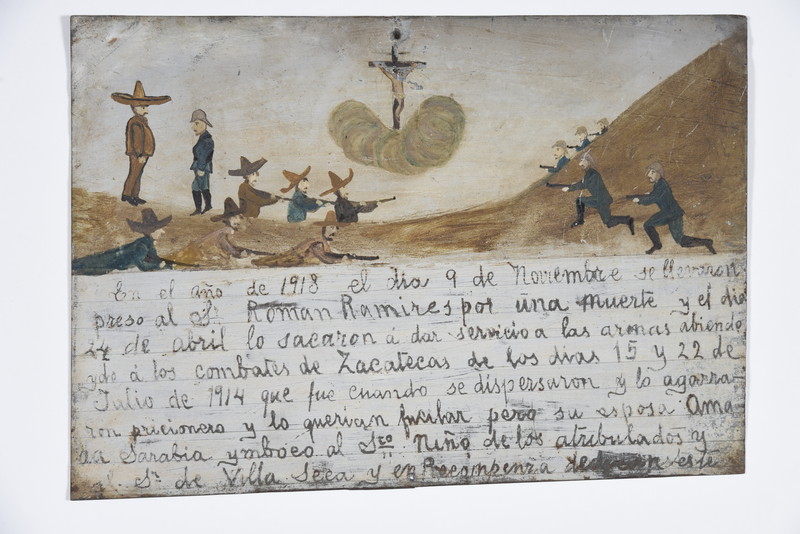 En el año de 1913 el dia 9 de Noviembre se llevaron
preso al Sr. Roman Ramires por una muerte y el dia
de abril lo sacaron á dar servicio a las armas abiendo
ydo á los combates de Zacatecas de los dias 15 y 22 de
Julio de 1914 que fue cuando se dispersaron y lo agarra-
ron pricionero y lo querian fucilar pero su esposa Ama
da Sarabia ymboco al Sto. Niño de los atribulados y
al Sr. de Villa Seca y en Recompenza este